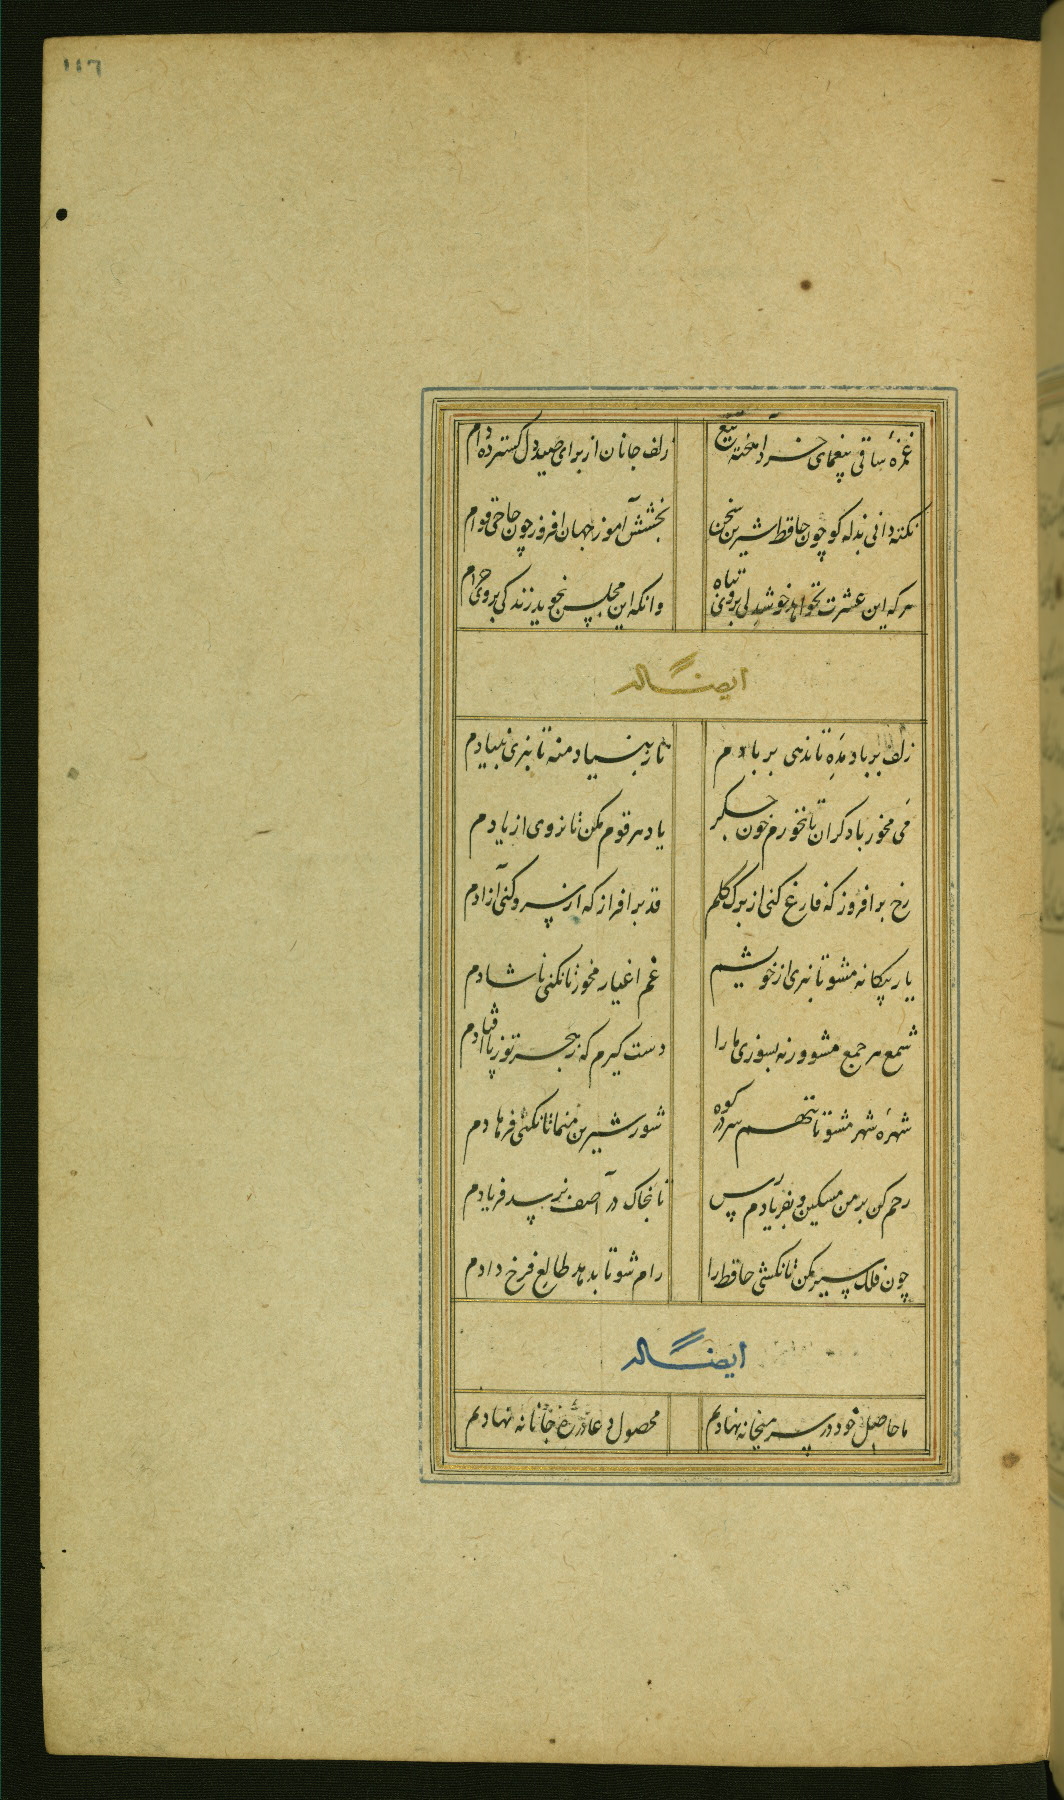 ١١٦
غمزهٔ ساقی بیغمای خرد آهخته تیغ زلف جانان از برای صید دل گسترده دام
نکته دانی بذله کو چون حافظ شیرین سخن بخشش آموز جهان افروز چون حاجی قوام
هر که این عشرت نخواهد خوشدلی بر وی تباه وانکه این مجلس نجوید زندکی بر وی حرام
ایضاً له
زلف بر باد مده تا ندهی بر بادم ناز بنیاد منه تا نبری بنیادم
می مخور با دکران تا نخورم خون جکر یاد هر قوم مکن تا نروی از یادم
رخ بر افروز که فارغ کنی از برک کلم قد بر افراز که از سرو کنی آزادم
یار بیکانه مشو تا نبری از خویشم غم اغیار مخور تا نکنی ناشادم
شمع هر جمع مشو ورنه بسوزی ما را دست کیرم که ز هجر تو ز پا افتادم
شهرهٔ شهر مشو تا ننهم سر در کوه شور شیرین منما تا نکنی فرهادم
رحم کن بر من مسکین و بفریادم رس تا بخاک در آصف نرسد فریادم
چون فلک سیر مکن تا نکشی حافظ را رام شو تا بدهد طالع فرخ دادم
ایضاً له
ما حاصل خود در سر میخانه نهادیم محصول دعا در ره جانانه نهادیم